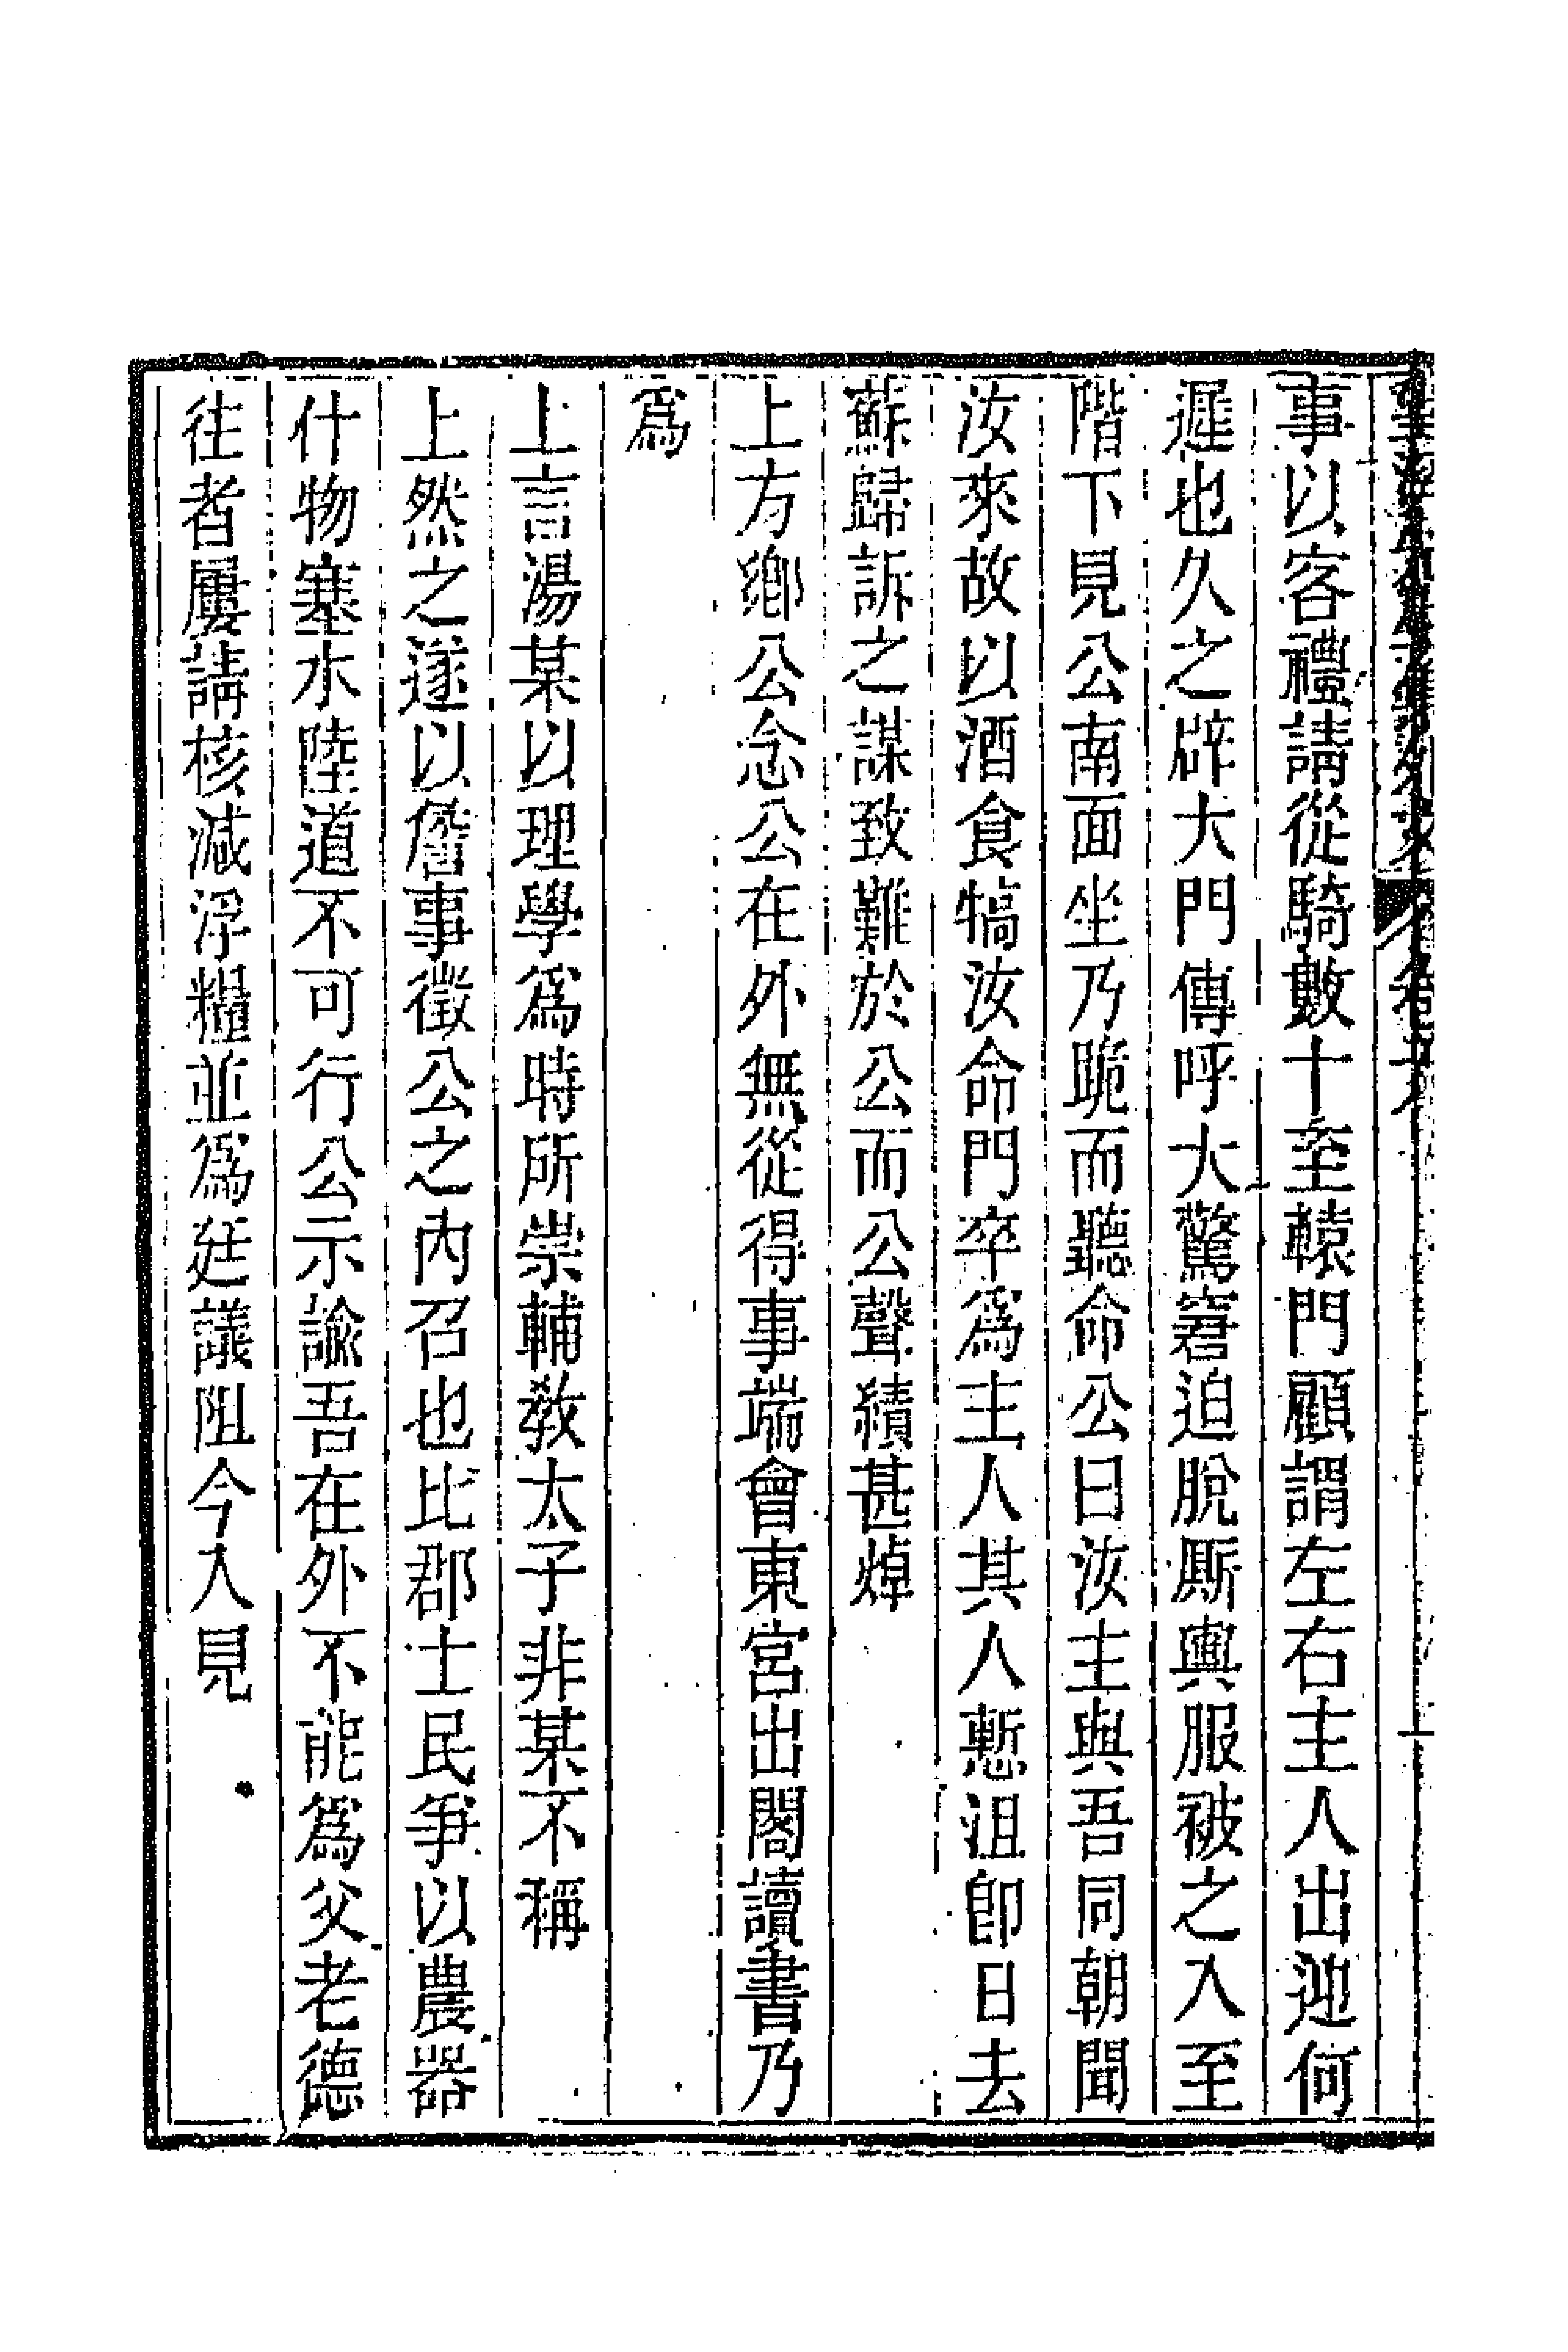 事以客禮請從騎數十至轅門顧謂左右主人出迎何
遲也久之辟大門傳呼大驚窘迫脫厮輿服被之入至
階下見公南面坐乃跪而聽命公曰汝主與吾同朝聞
汝來故以酒食犒汝命門卒為主人其人慙沮卽日去
蘇歸訴之謀致難於公而公聲績甚焯
上方鄉公念公在外無從得事端會東宮出閣讀書乃
為
上言湯某以理學為時所崇輔教太子非某不稱
上然之遂以詹事徵公之內召也比郡士民爭以農器
什物塞水陸道不可行公示諭吾在外不能為父老德
往者屢請核減浮糧並為廷議阻今入見